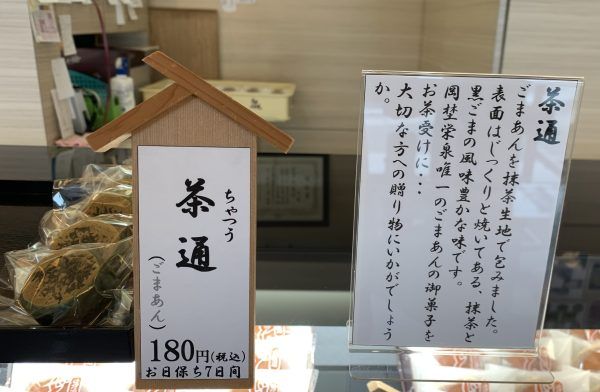 ちゃつう
茶通
(ごまあん)
180円(税込)
お日保ち7日間
茶通
ごまあんを抹茶生地で包みました。
表面はじっくりと焼いてある、抹茶と
黒ごまの風味豊かな味です。
岡埜栄泉唯一のごまあんの御菓子を
お茶受けに・・・
大切な方への贈り物にいかがでしょう
か。